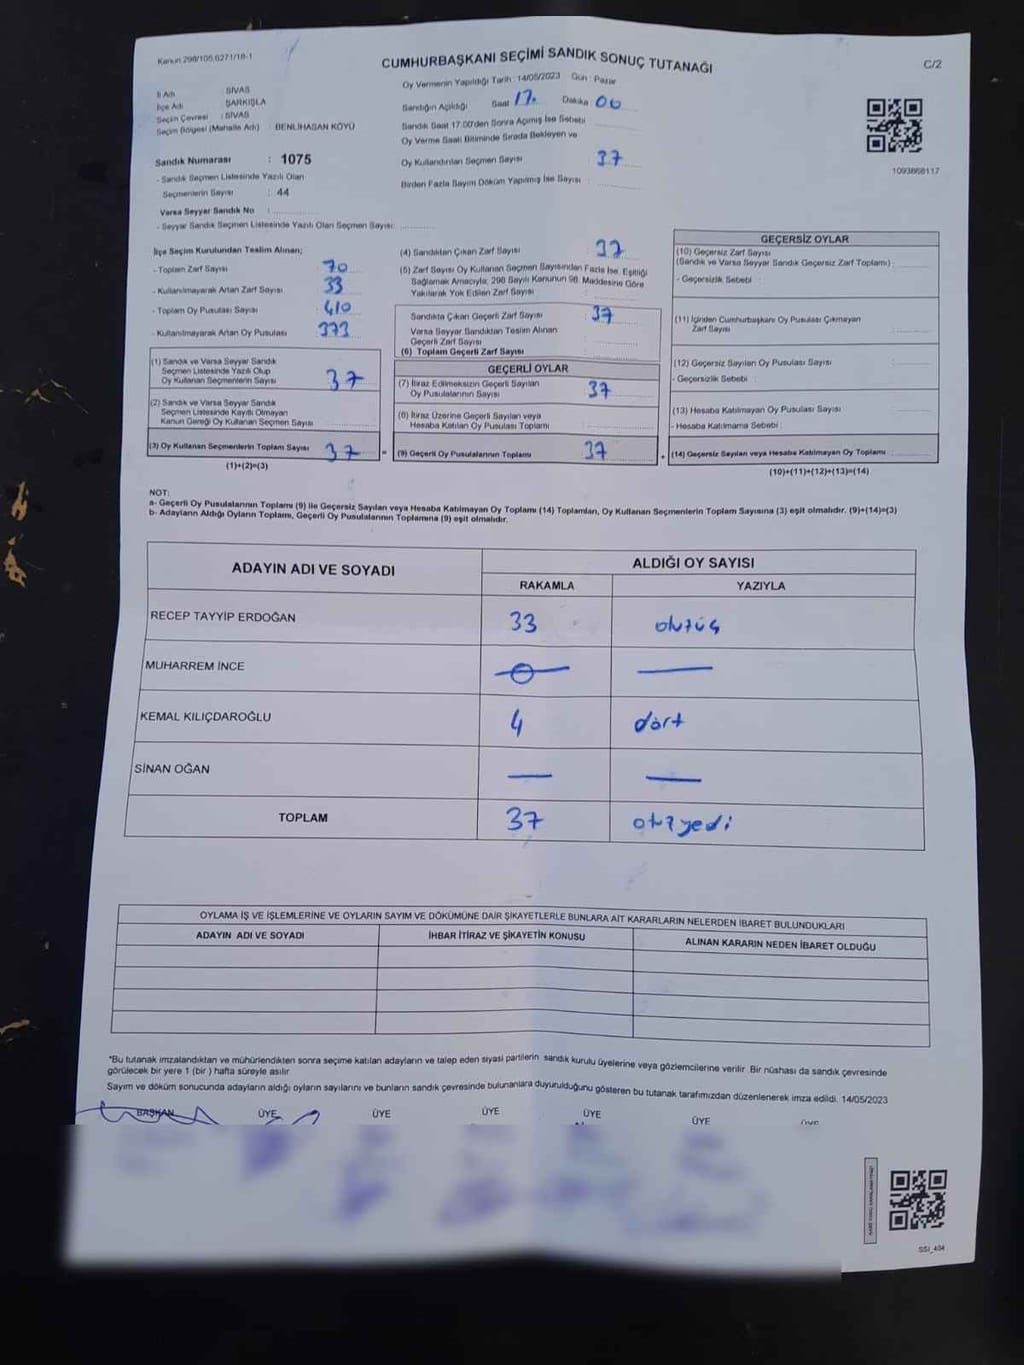 Kanun 298/105,6271/18-1
CUMHURBAŞKANI SEÇİMİ SANDIK SONUÇ TUTANAĞI
C/2
Oy Vermenin Yapıldığı Tarih : 14/05/2023 Gün : Pazar
İl Adı SİVAS
İlçe Adı ŞARKIŞLA
Seçim Çevresi : SİVAS
Seçim Bölgesi (Mahalle Adı) : BENLİHASAN KÖYÜ
Sandığın Açıldığı Saat 17. Dakika 00
Sandık Saat 17:00'den Sonra Açılmış İse Sebebi
Oy Verme Saati Bitiminde Sırada Bekleyen ve
Oy Kullandırılan Seçmen Sayısı : 37
Birden Fazla Sayım Döküm Yapılmış İse Sayısı :
1093668117
Sandık Numarası : 1075
- Sandık Seçmen Listesinde Yazılı Olan
Seçmenlerin Sayısı : 44
Varsa Seyyar Sandık No :
- Seyyar Sandık Seçmen Listesinde Yazılı Olan Seçmen Sayısı:
İlçe Seçim Kurulundan Teslim Alınan;
- Toplam Zarf Sayısı 70
- Kullanılmayarak Artan Zarf Sayısı 33
- Toplam Oy Pusulası Sayısı 410
- Kullanılmayarak Artan Oy Pusulası 373
(1) Sandık ve Varsa Seyyar Sandık
Seçmen Listesinde Yazılı Olup
Oy Kullanan Seçmenlerin Sayısı 37
(2) Sandık ve Varsa Seyyar Sandık
Seçmen Listesinde Kayıtlı Olmayan
Kanun Gereği Oy Kullanan Seçmen Sayısı
(3) Oy Kullanan Seçmenlerin Toplam Sayısı 37
(1)+(2)=(3)
(4) Sandıktan Çıkan Zarf Sayısı 37
(5) Zarf Sayısı Oy Kullanan Seçmen Sayısından Fazla İse, Eşitliği
Sağlamak Amacıyla; 298 Sayılı Kanunun 98. Maddesine Göre
Yakılarak Yok Edilen Zarf Sayısı :
Sandıkta Çıkan Geçerli Zarf Sayısı : 37
Varsa Seyyar Sandıktan Teslim Alınan
Geçerli Zarf Sayısı
(6) Toplam Geçerli Zarf Sayısı
GEÇERLİ OYLAR
(7) İtiraz Edilmeksizin Geçerli Sayılan
Oy Pusulalarının Sayısı 37
(8) İtiraz Üzerine Geçerli Sayılan veya
Hesaba Katılan Oy Pusulası Toplamı
= (9) Geçerli Oy Pusulalarının Toplamı 37
GEÇERSİZ OYLAR
(10) Geçersiz Zarf Sayısı
(Sandık ve Varsa Seyyar Sandık Geçersiz Zarf Toplamı) :
- Geçersizlik Sebebi :
(11) İçinden Cumhurbaşkanı Oy Pusulası Çıkmayan
Zarf Sayısı
(12) Geçersiz Sayılan Oy Pusulası Sayısı
- Geçersizlik Sebebi :
(13) Hesaba Katılmayan Oy Pusulası Sayısı
- Hesaba Katılmama Sebebi :
+ (14) Geçersiz Sayılan veya Hesaba Katılmayan Oy Toplamı
(10)+(11)+(12)+(13)=(14)
NOT:
a- Geçerli Oy Pusulalarının Toplamı (9) ile Geçersiz Sayılan veya Hesaba Katılmayan Oy Toplamı (14) Toplamları, Oy Kullanan Seçmenlerin Toplam Sayısına (3) eşit olmalıdır. (9)+(14)=(3)
b- Adayların Aldığı Oyların Toplamı, Geçerli Oy Pusulalarının Toplamına (9) eşit olmalıdır.
ADAYIN ADI VE SOYADI
ALDIĞI OY SAYISI
RAKAMLA YAZIYLA
RECEP TAYYİP ERDOĞAN 33 otuzüç
MUHARREM İNCE
KEMAL KILIÇDAROĞLU 4 dört
SİNAN OĞAN
TOPLAM 37 otuzyedi
OYLAMA İŞ VE İŞLEMLERİNE VE OYLARIN SAYIM VE DÖKÜMÜNE DAİR ŞİKAYETLERLE BUNLARA AİT KARARLARIN NELERDEN İBARET BULUNDUKLARI
ADAYIN ADI VE SOYADI İHBAR İTİRAZ VE ŞİKAYETİN KONUSU ALINAN KARARIN NEDEN İBARET OLDUĞU
*Bu tutanak imzalandıktan ve mühürlendikten sonra seçime katılan adayların ve talep eden siyasi partilerin sandık kurulu üyelerine veya gözlemcilerine verilir. Bir nüshası da sandık çevresinde
görülecek bir yere 1 (bir ) hafta süreyle asılır.
Sayım ve döküm sonucunda adayların aldığı oyların sayılarını ve bunların sandık çevresinde bulunanlara duyurulduğunu gösteren bu tutanak tarafımızdan düzenlenerek imza edildi. 14/05/2023
BAŞKAN ÜYE ÜYE ÜYE ÜYE ÜYE
SSI_494